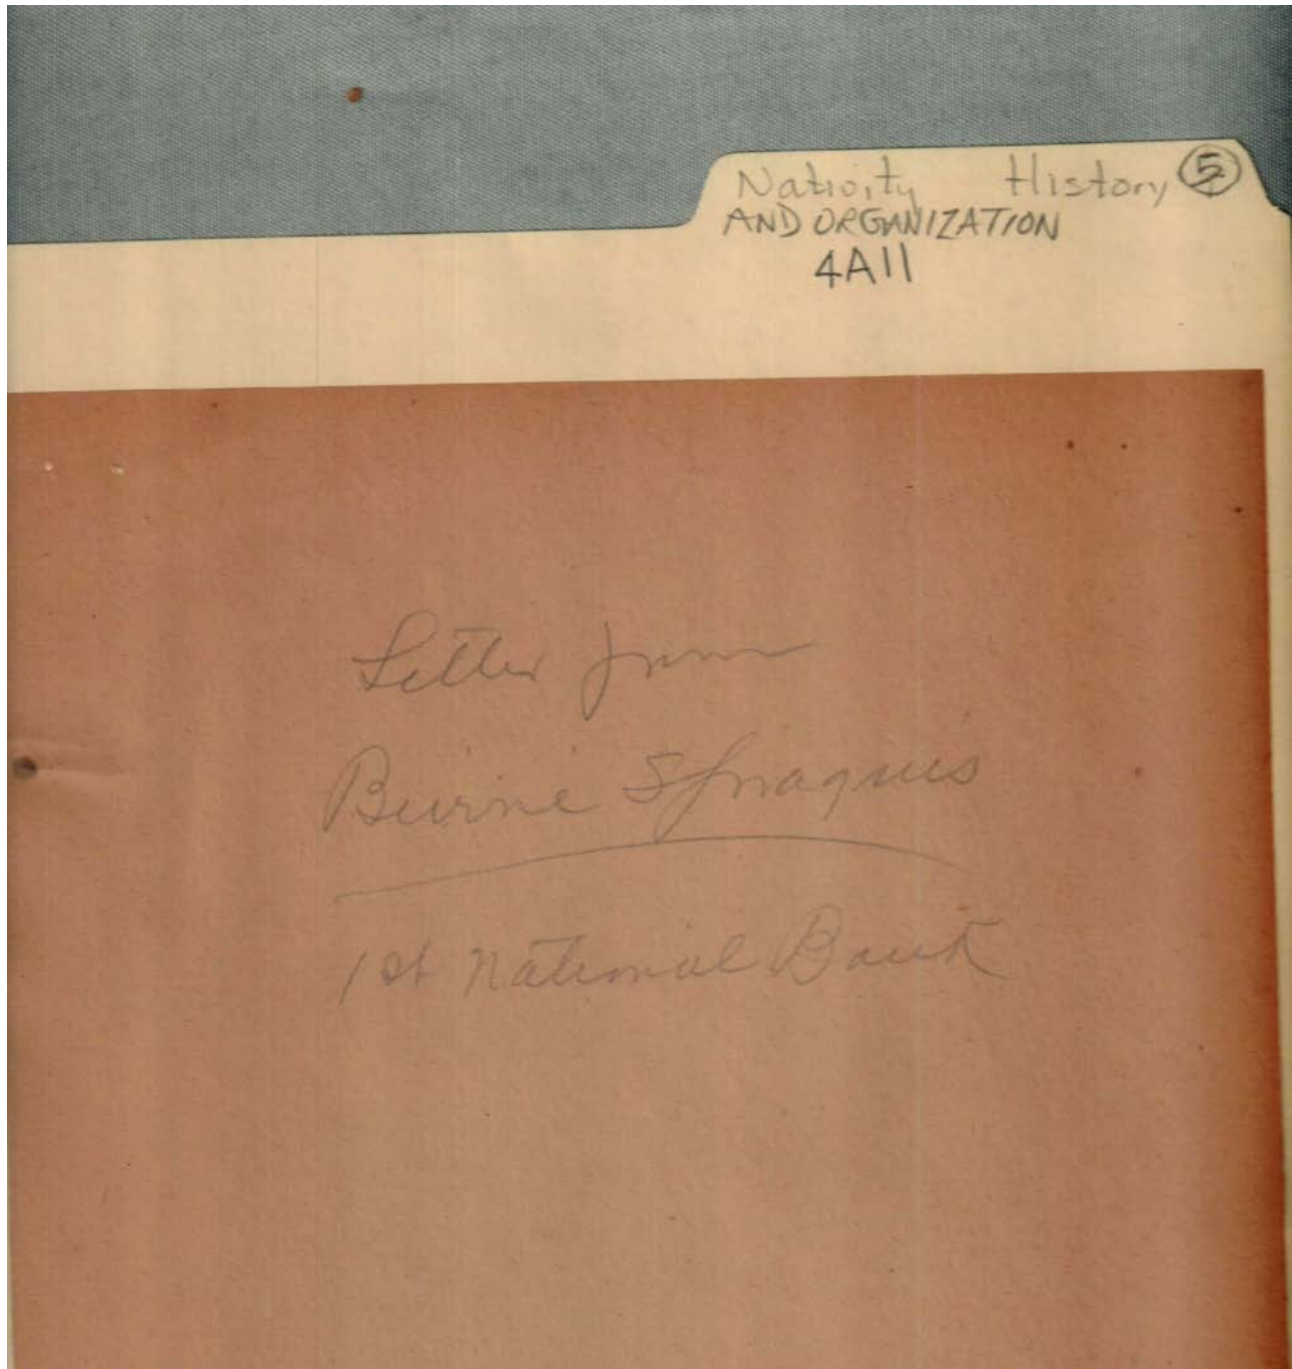 Nativity History 5
AND ORGANIZATION
4A11
Letter from
Burne Spragues
1st National Bank